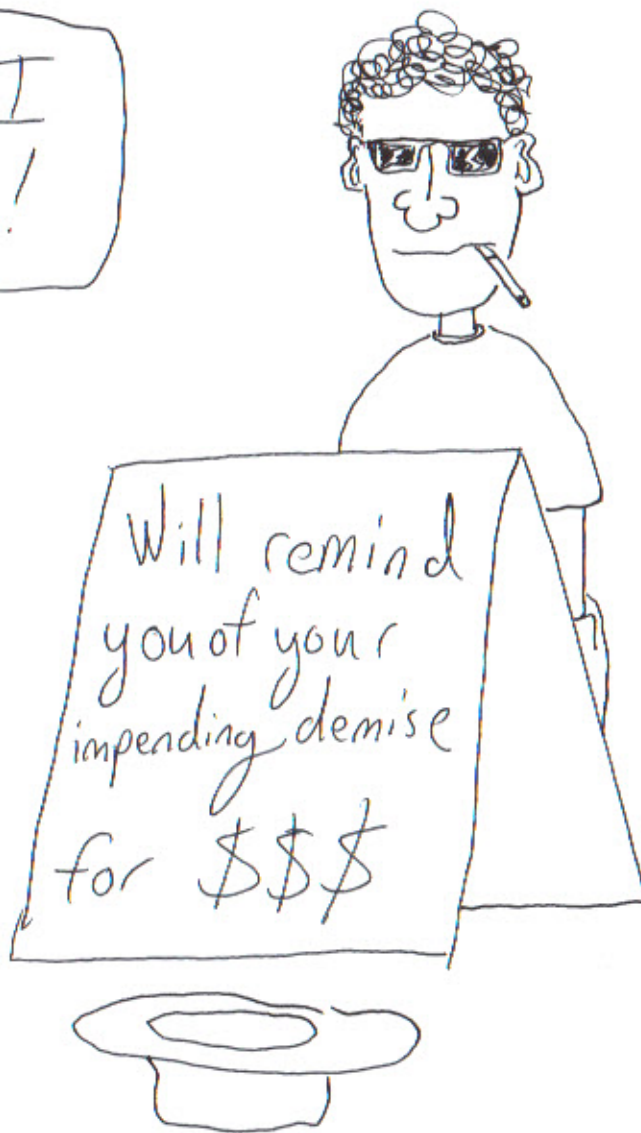 I
!
Will remind
you of your
impending demise
for $$$